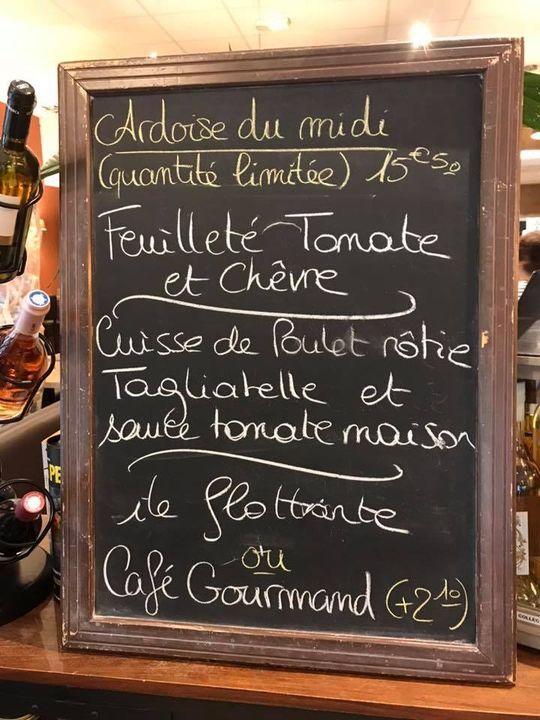 Ardoise du midi
(quantité limitée) 15€50
Feuilleté Tomate
et Chêvre
Cuisse de Poulet rôtie
Tagliatelle et
sauce tomate maison
île flottante
ou
Café Gourmand (+2 10)